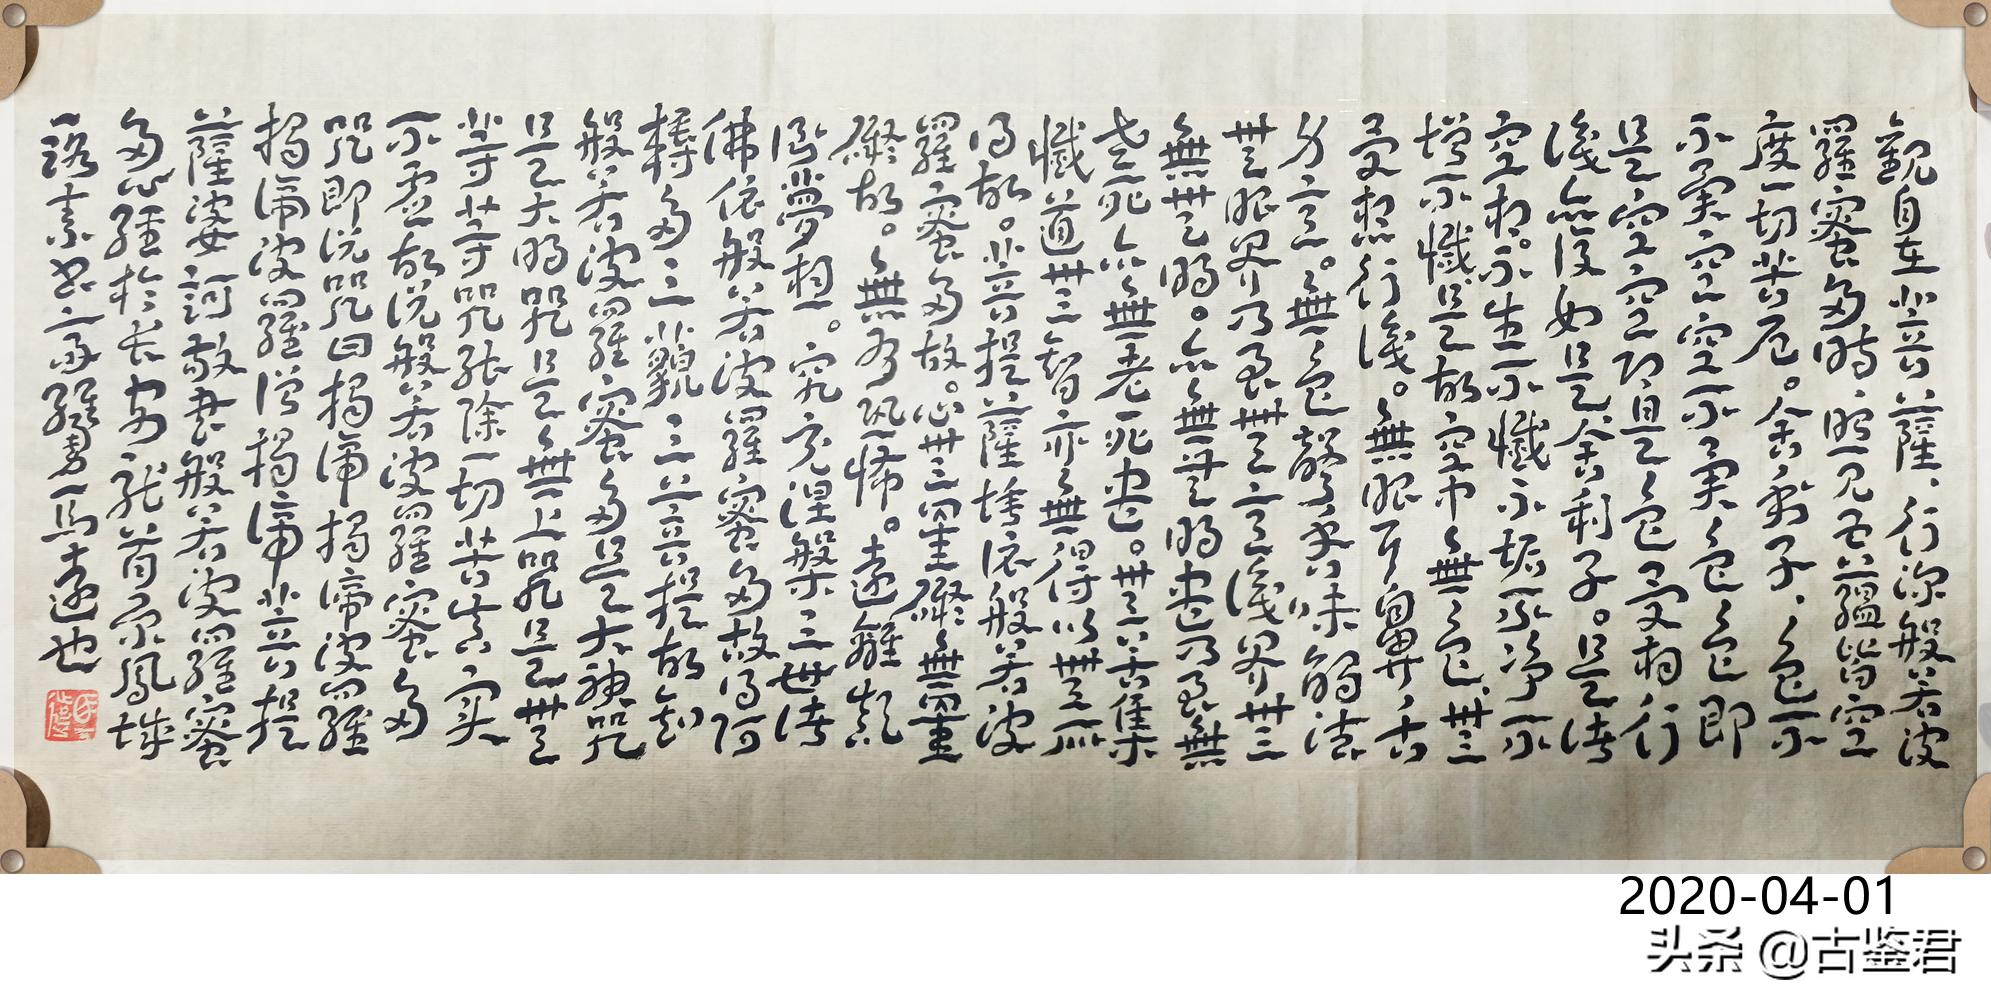 觀自在菩薩、行深般若波
羅蜜多時、照見五蘊皆空
度一切苦厄。舍利子、色不
不異空空不異色色即
是空空即是色受相行
識亦復如是舍利子。是諸
空相。不生不滅不垢不淨不
增不滅是故空中無色、無
受相行識。無眼耳鼻舌
身意。無色聲香味觸法
無眼界乃至無意識界無
無無明。亦無無明盡乃至無
老死亦無老死盡。無苦集
滅道無智亦無得以無所
得故。菩提薩埵依般若波
羅蜜多故。心無罣礙無罣
礙故。無有恐怖。遠離顛
倒夢想。究竟涅槃三世諸
佛依般若波羅蜜多故得阿
耨多三藐三菩提故知
般若波羅蜜多是大神咒
是大明咒是無上咒是無
等等咒能除一切苦真實
不虛故說般若波羅蜜多
咒即說咒曰揭諦揭諦波羅
揭諦波羅僧揭諦菩提
薩婆訶敬書般若波羅蜜
多心經於長安龍首原鳳城
一路 馬遠也
2020-04-01
头条 @古鉴君